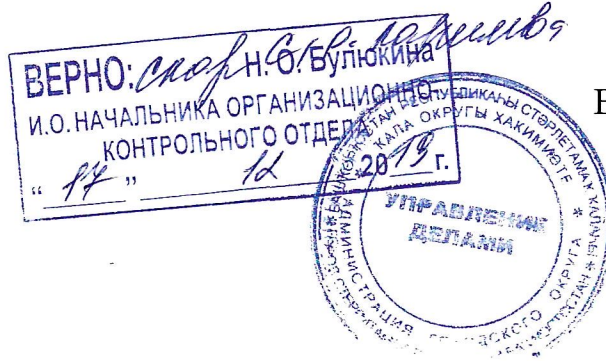 ВЕРНО: Н. О. Булюкина
И.О. НАЧАЛЬНИКА ОРГАНИЗАЦИОННО-
КОНТРОЛЬНОГО ОТДЕЛА
“ 17 ” 12 2013 г.
БАШКОРТОСТАН РЕСПУБЛИКАҺЫ СТӘРЛЕТАМАҠ ҠАЛАҺЫ
ҠАЛА ОКРУГЫ ХАКИМИӘТЕ
АДМИНИСТРАЦИЯ ГОРОДСКОГО ОКРУГА
УПРАВЛЕНИЕ
ДЕЛАМИ